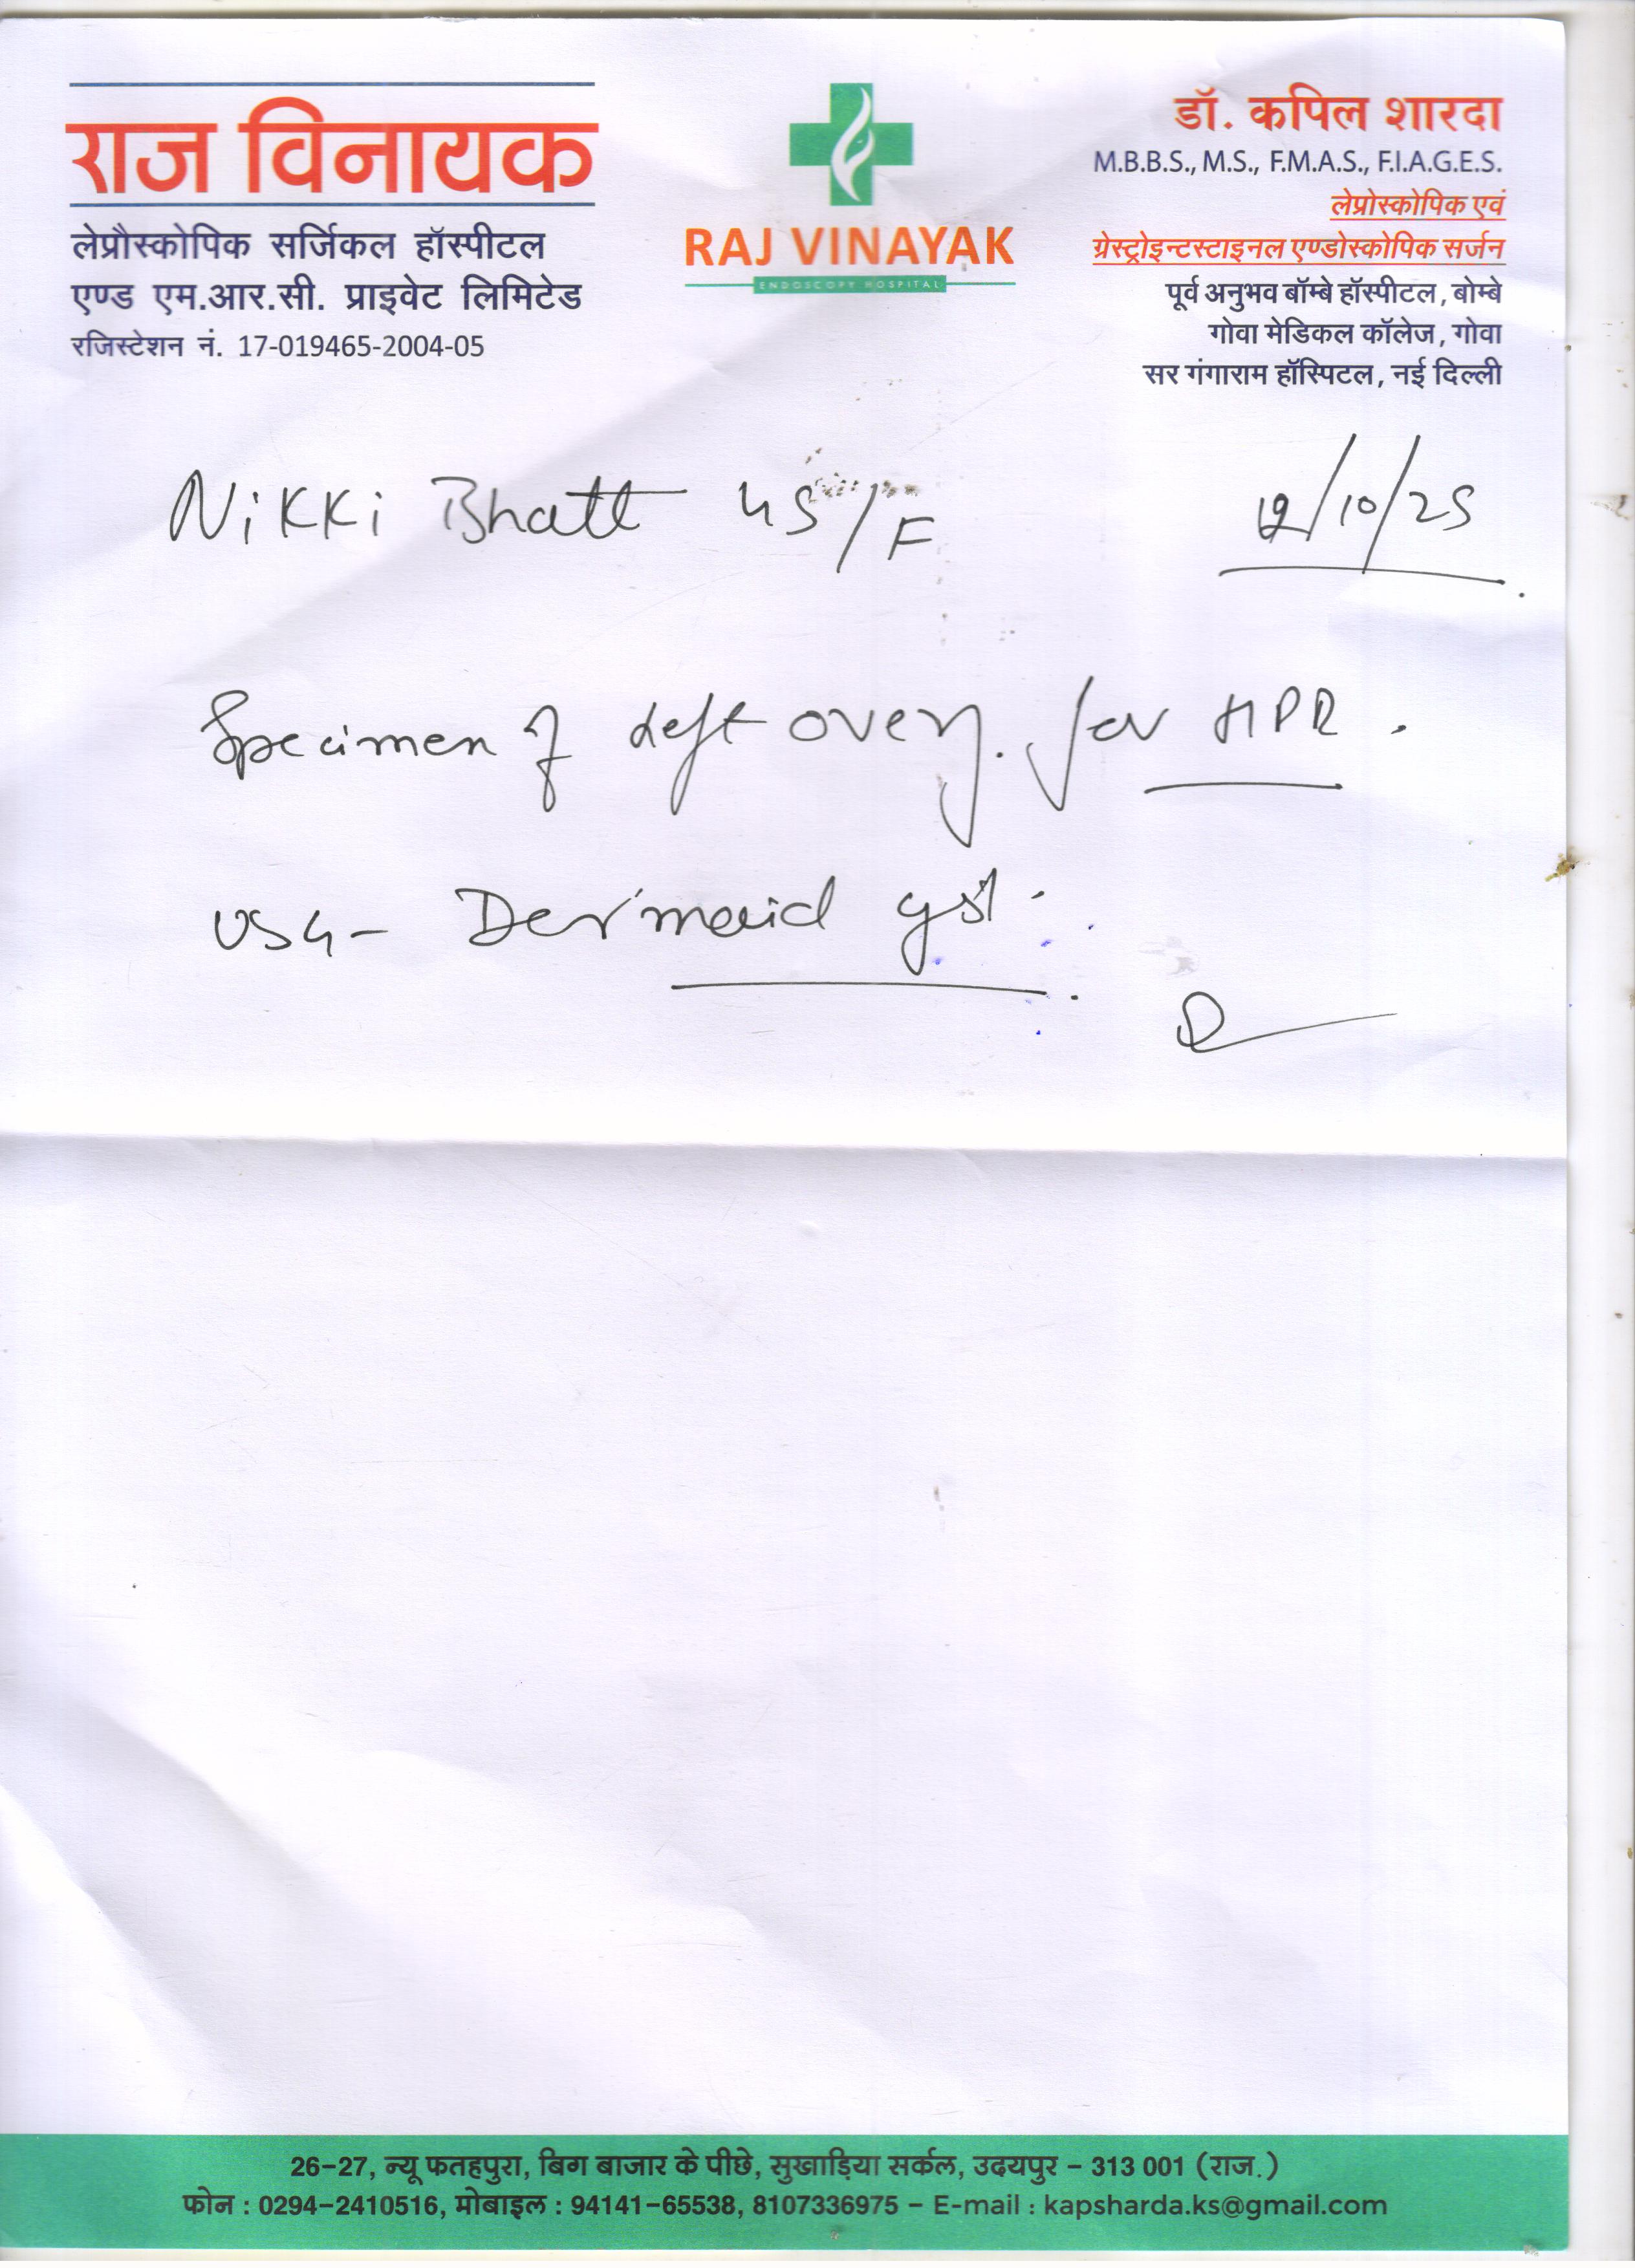 राज विनायक
लेप्रौस्कोपिक सर्जिकल हॉस्पीटल
एण्ड एम.आर.सी. प्राइवेट लिमिटेड
रजिस्टेशन नं. 17-019465-2004-05
RAJ VINAYAK
ENDOSCOPY HOSPITAL
डॉ. कपिल शारदा
M.B.B.S., M.S., F.M.A.S., F.I.A.G.E.S.
लेप्रोस्कोपिक एवं
ग्रेस्ट्रोइन्टस्टाइनल एण्डोस्कोपिक सर्जन
पूर्व अनुभव बॉम्बे हॉस्पीटल, बोम्बे
गोवा मेडिकल कॉलेज, गोवा
सर गंगाराम हॉस्पिटल, नई दिल्ली
Nikki Bhatt 45/F
/10/25
Specimen of Left overy. for HPR.
USG- Dermoid cyst.
26-27, न्यू फतहपुरा, बिग बाजार के पीछे, सुखाड़िया सर्कल, उदयपुर - 313 001 (राज.)
फोन : 0294-2410516, मोबाइल : 94141-65538, 8107336975 - E-mail : kapsharda.ks@gmail.com